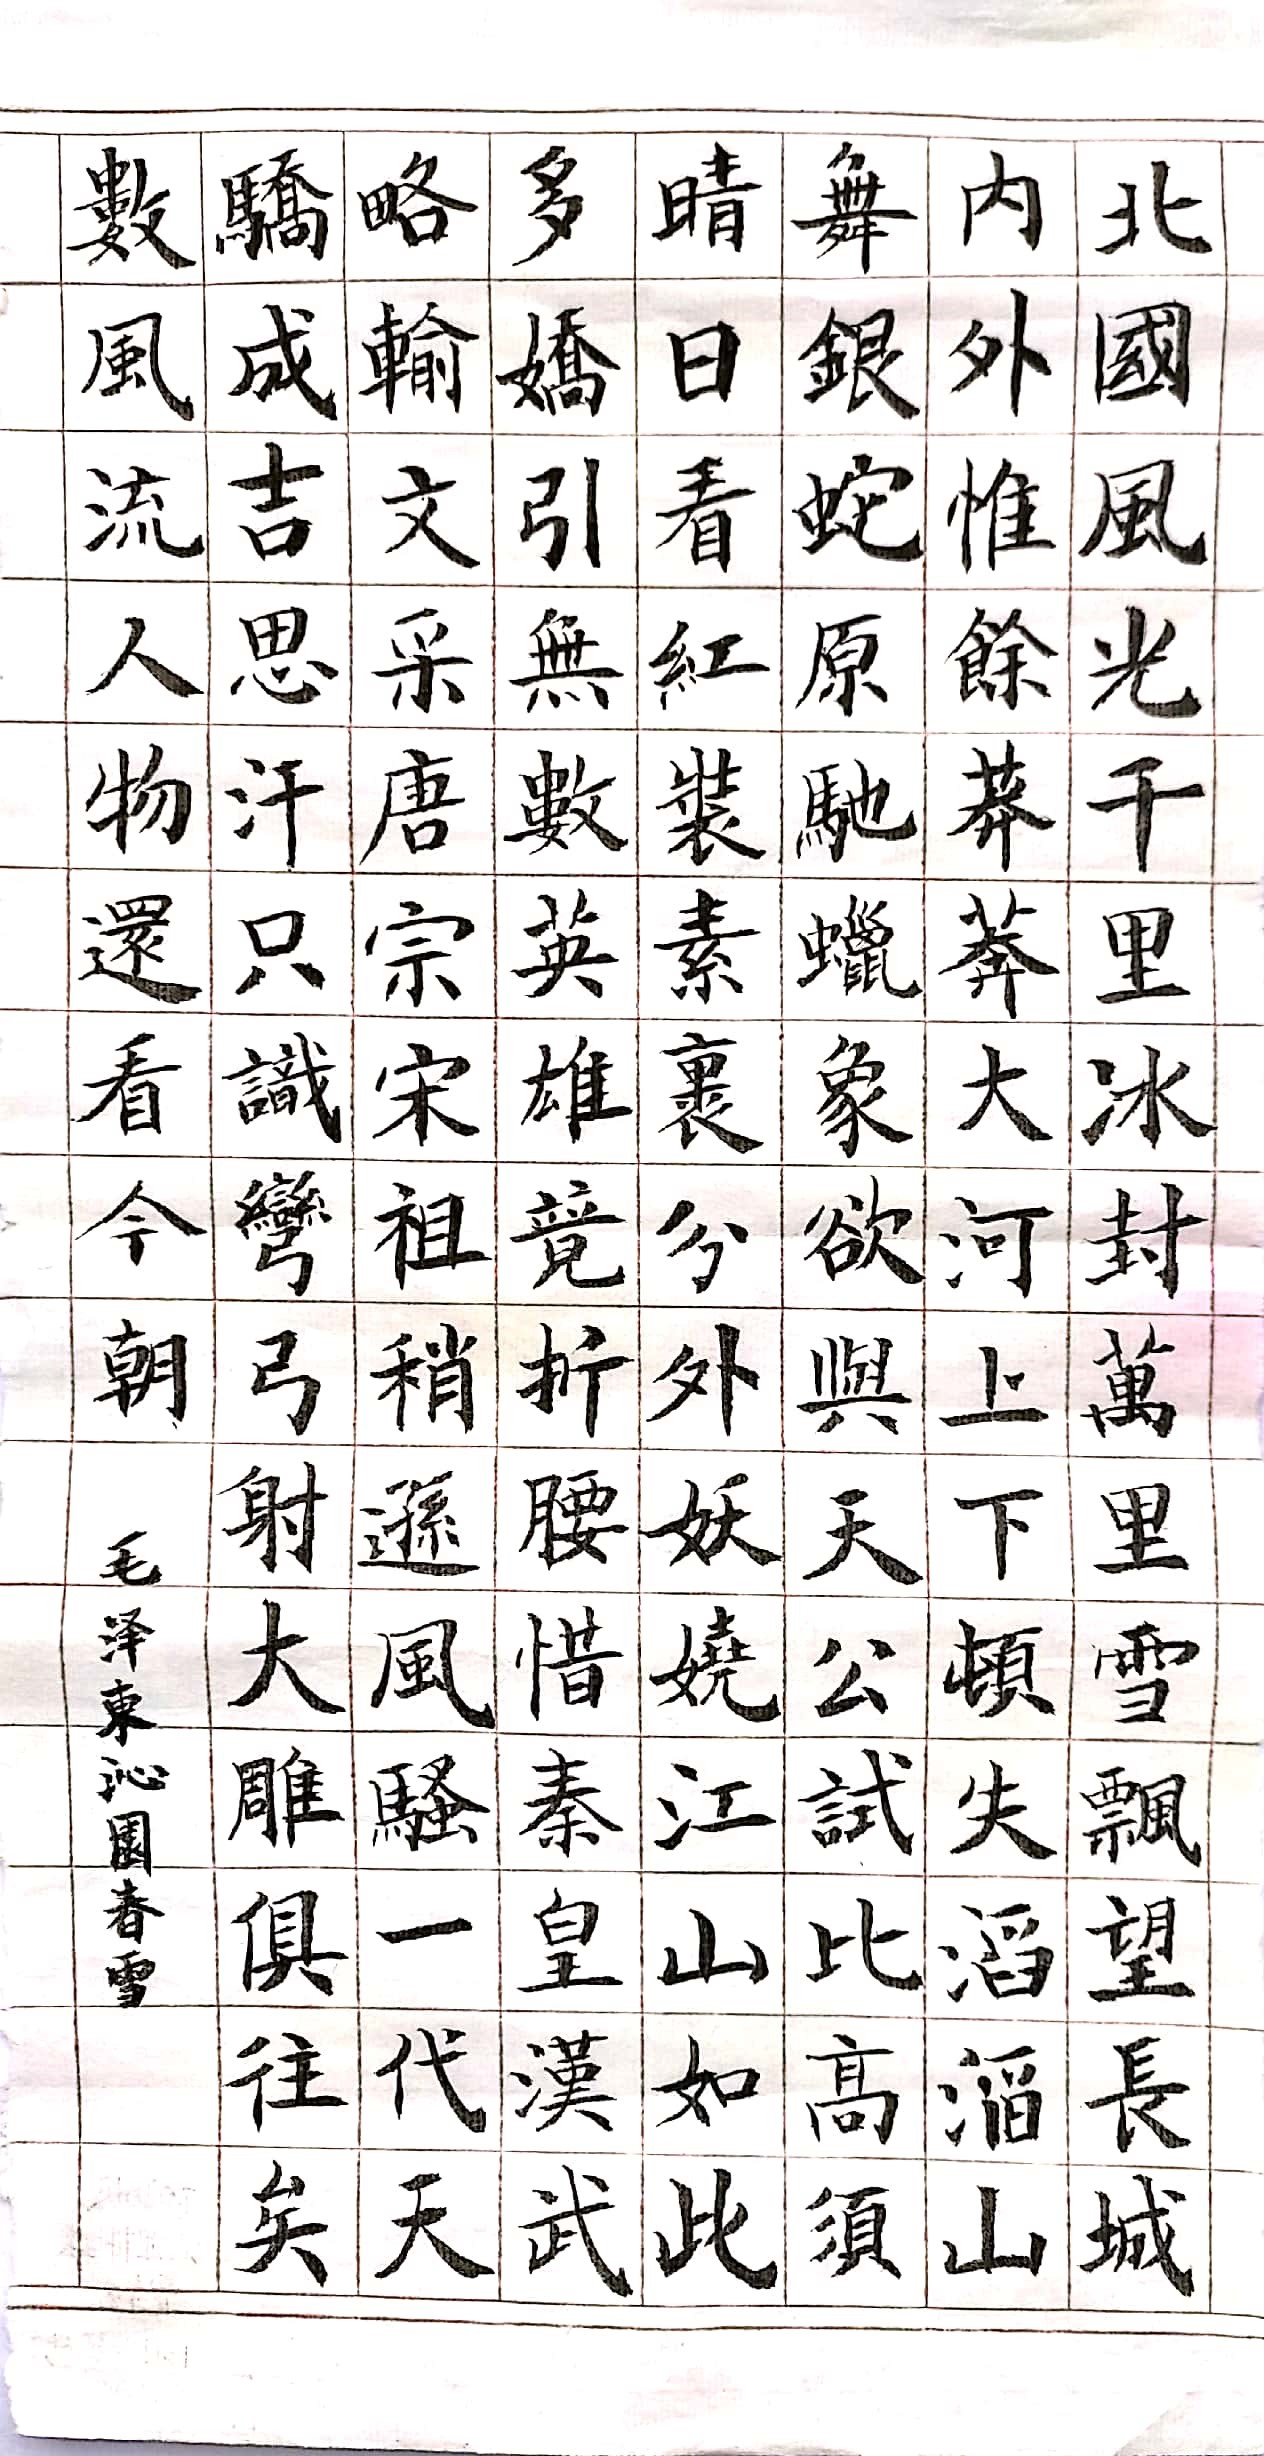 北國風光千里冰封萬里雪飄望長城
内外惟餘莽莽大河上下頓失滔滔山
舞銀蛇原馳蠟象欲與天公試比高須
晴日看紅裝素裹分外妖嬈江山如此
多嬌引無數英雄竞折腰惜秦皇漢武
略輸文采唐宗宋祖稍遜風騷一代天
驕成吉思汗只識彎弓射大雕俱往矣
數風流人物還看今朝
毛泽東沁園春雪